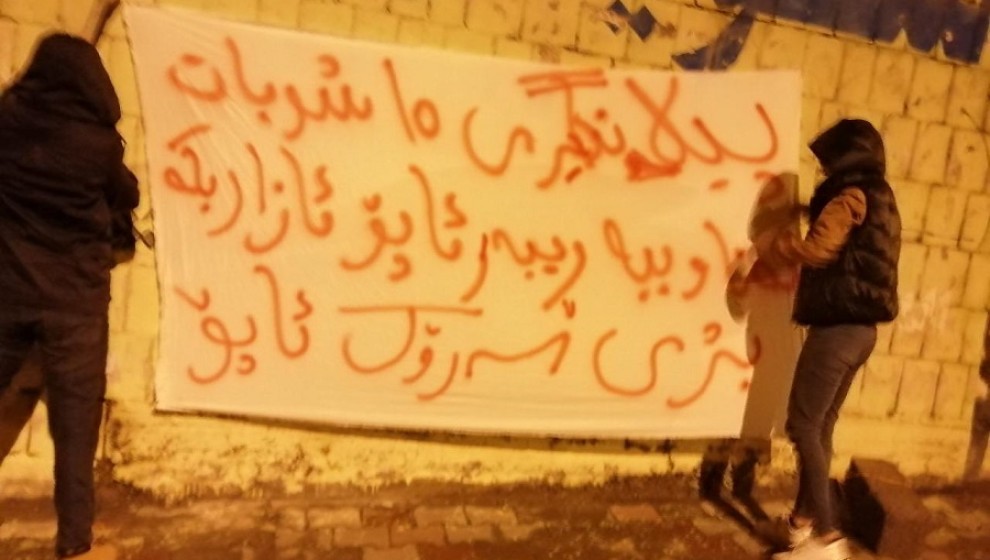 پیلانگێری ١٥ شوبات
ناوبیە ریبەر ئاپۆ ئازار بکە
بژی سەرۆک ئاپۆ